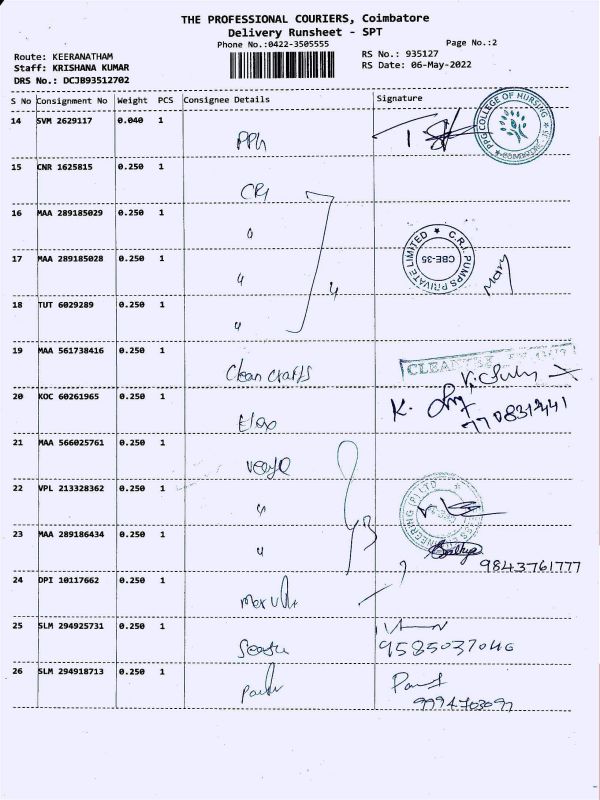 THE PROFESSIONAL COURIERS, Coimbatore
Delivery Runsheet - SPT
Phone No.:0422-3505555
Page No.:2
Route: KEERANATHAM
RS No.: 935127
Staff: KRISHANA KUMAR
RS Date: 06-May-2022
DRS No.: DCJB93512702
S No Consignment No Weight PCS Consignee Details Signature
14 SVM 2629117 0.040 1
PPG COLLEGE OF NURSING
15 CNR 1625815 0.250 1
CRI
16 MAA 289185029 0.250 1
17 MAA 289185028 0.250 1
C.R.I. PUMPS PRIVATE LIMITED
CBE-35
18 TUT 6029289 0.250 1
19 MAA 561738416 0.250 1
Clean Crafts
20 KOC 60261965 0.250 1
K.
21 MAA 566025761 0.250 1
22 VPL 213328362 0.250 1
23 MAA 289186434 0.250 1
9843761777
24 DPI 10117662 0.250 1
25 SLM 294925731 0.250 1
9585037046
26 SLM 294918713 0.250 1